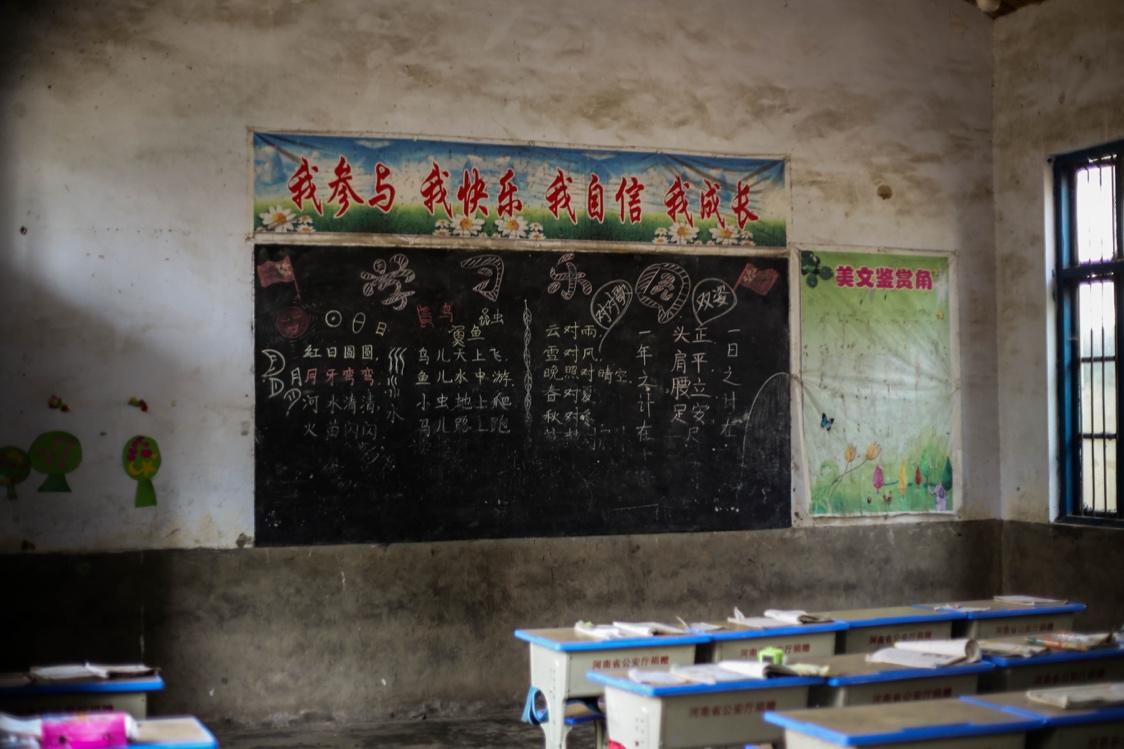 我参与 我快乐 我自信 我成长
美文鉴赏角
学习乐园
对对歌
双姿
日
鸟
虫
鱼
红日圆圆,
月牙弯弯,
河水清清,
火苗闪闪
月
水
鸟儿天上飞,
鱼儿水中游,
小虫地上爬
马儿路上跑
云对雨
雪对风
晚照对晴空
春对夏
秋对
一年之计在
头肩腰足
正平立安
一日之计在
河南省公安厅捐赠
河南省公安厅捐赠
河南省公安厅捐赠
河南省公安厅捐赠
河南省公安厅捐赠